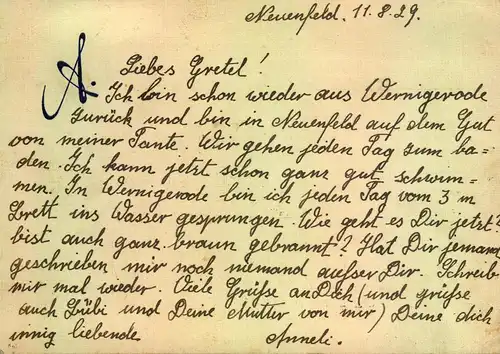 Neuenfeld. 11.8.29.
A.
Liebes Gretel!
Ich bin schon wieder aus Wernigerode
zurück und bin in Neuenfeld auf dem Gut
von meiner Tante. Wir gehen jeden Tag zum ba-
den. Ich kann jetzt schon ganz gut schwim-
men. In Wernigerode bin ich jeden Tag vom 3 m
Brett ins Wasser gesprungen. Wie geht es Dir jetzt?
bist auch ganz braun gebrannt? Hat Dir jemand
geschrieben, mir noch niemand außer Dir. Schreib
mir mal wieder. Viele Grüße an Dich (und grüße
auch Bübi und Deine Mutter von mir) Deine dich
innig liebende Anneli.